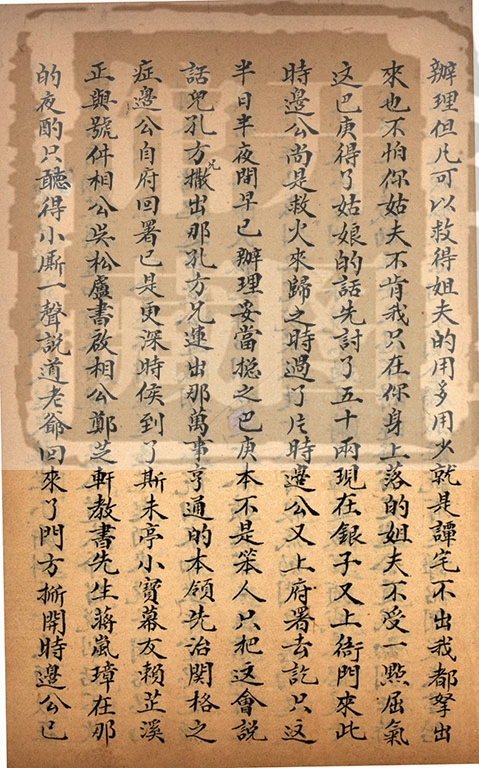 辦理但凡可以救得姐夫的用多用少就是譚宅不出我都拏出
來也不怕你姑夫不肯我只在你身上落的姐夫不受一㸃屈氣
这巴庚得了姑娘的話先討了五十兩現在銀子又上衙門來此
時邉公尚是救火來歸之時過了片時邉公又上府署去訖只这
半日半夜間早已辦理妥當捴之巴庚本不是笨人只把这會說
話兒孔方兄撒出那孔方兄運出那萬事亨通的本領先治関格之
症邉公自府回署已是更深時侯到了斯未亭小寶幕友賴芷溪
正與號件相公吳松廬書啟相公鄭芝軒教書先生蔣嵐璋在那
的夜酌只聽得小厮一聲説道老爺回來了門方掀開時邉公已